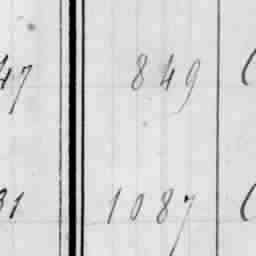 47 849
31 1087